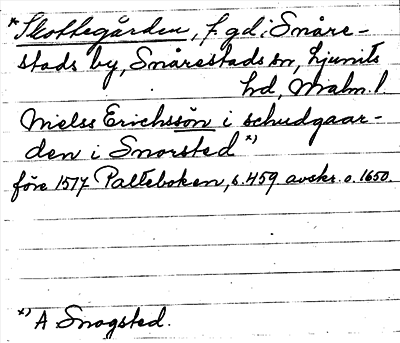 *Skottegården, f. gd i Snåre-
stads by, Snårestads sn, Ljunits
hd, Malm. l
Nielss Erichssøn i schudgaar-
den i Snorsted *)
före 1517 Palteboken, s. 459 avskr. o. 1650.
*) A Snogsted.